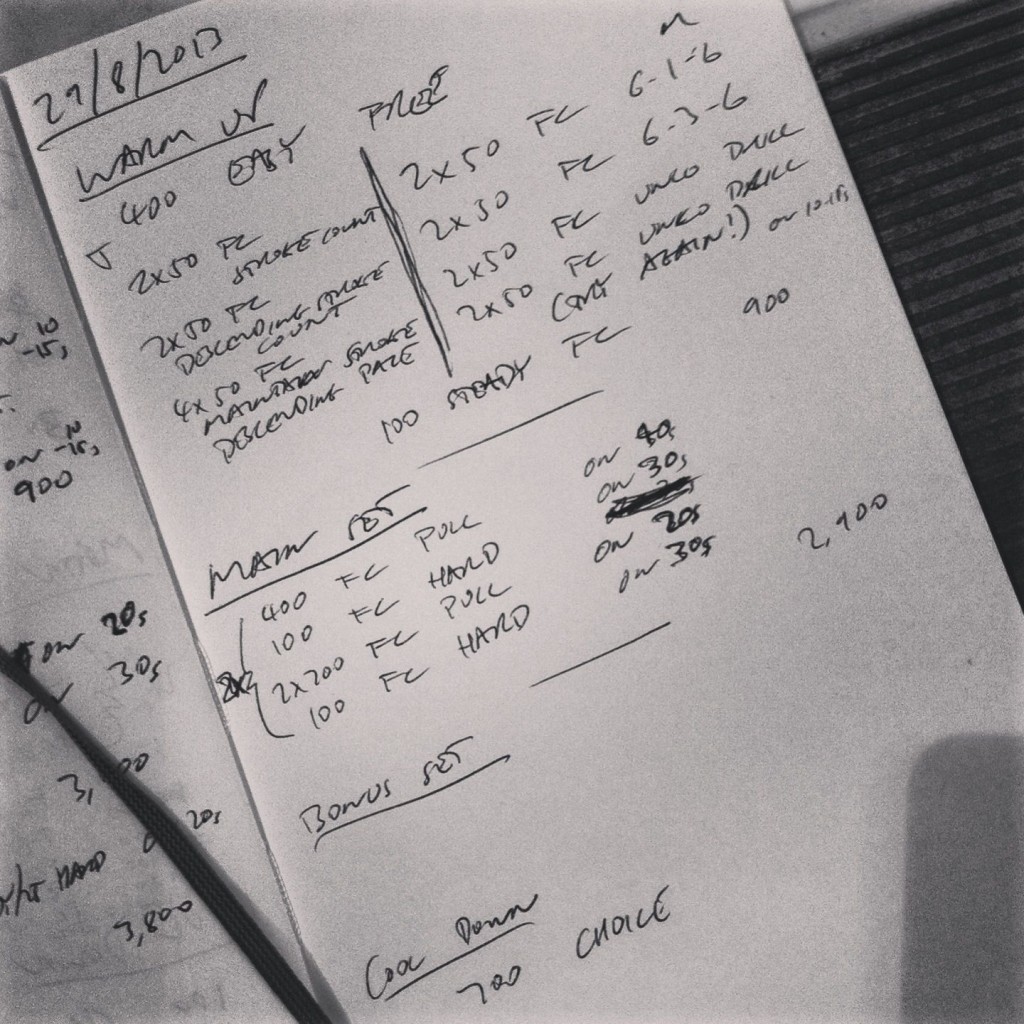 29/8/2013
WARM UP
400 EASY FREE
2x50 FC
STROKE COUNT
2x50 FC
DESCENDING STROKE
COUNT
4x50 FC
MAINTAIN STROKE
DESCENDING PACE
2x50 FC 6-1-6
2x50 FC 6-3-6
2x50 FC UNCO DRILL
2x50 FC UNCO DRILL
AGAIN!) ON 10-15s
100 STEADY FC
900
MAIN SET
400 FC PULL ON 40s
100 FC HARD ON 30s
2x200 FC PULL ON 20s
100 FC HARD ON 30s
2,900
BONUS SET
COOL DOWN
200 CHOICE
ON 10
-15s
ON 10
-15s
900
ON 20s
ON 30s
HARD ON 20s
3,800